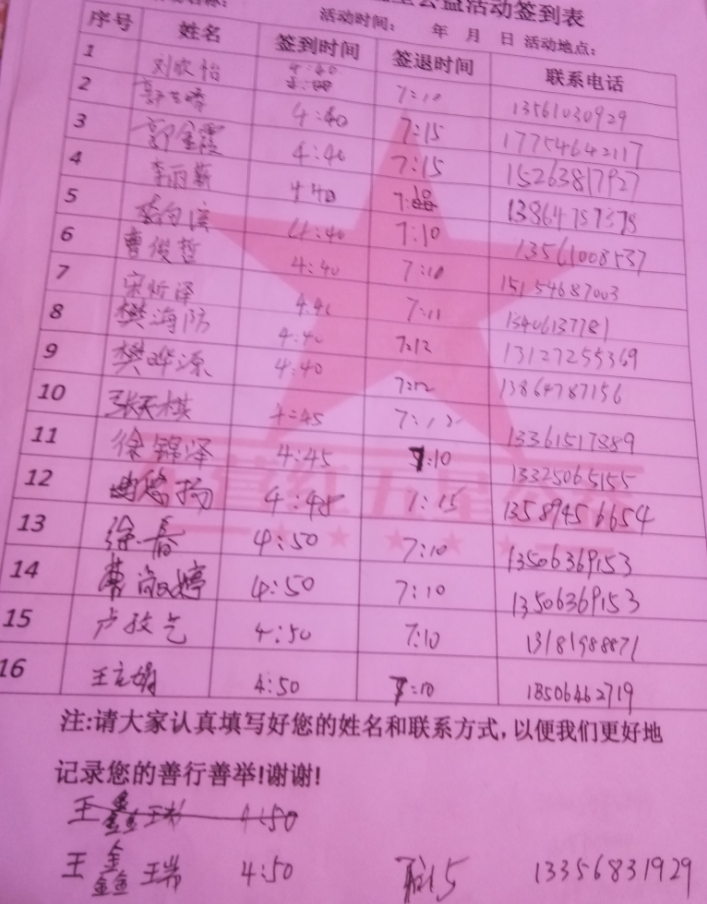 公益活动签到表
活动时间: 年 月 日 活动地点:
序号 姓名 签到时间 签退时间 联系电话
1 刘欣怡 4:40 7:10 13561030929
2 4:40 7:15 17754642117
3 郭金霞 4:40 7:15 15263817927
4 李雨薪 4:40 7:10
5 4:40 7:10 13561008537
6 曹俊哲 4:40 7:10 15154687003
7 宋昕泽 4:40 7:11
8 樊海防 4:40 7:12 13127255369
9 樊晔源 4:40 7:12 13864787156
10 张天棋 4:45 7:12
11 徐锦泽 4:45 7:10 13325065155
12 4:48 7:15 13589456654
13 徐春 4:50 7:10 13506369153
14 曹淑婷 4:50 7:10 13506369153
15 4:50 7:10 13181988871
16 4:50 7:10 18506462719
注:请大家认真填写好您的姓名和联系方式,以便我们更好地
记录您的善行善举!谢谢!
王鑫瑞 4:50
王鑫瑞 4:50 13356831929
东营红五星公益